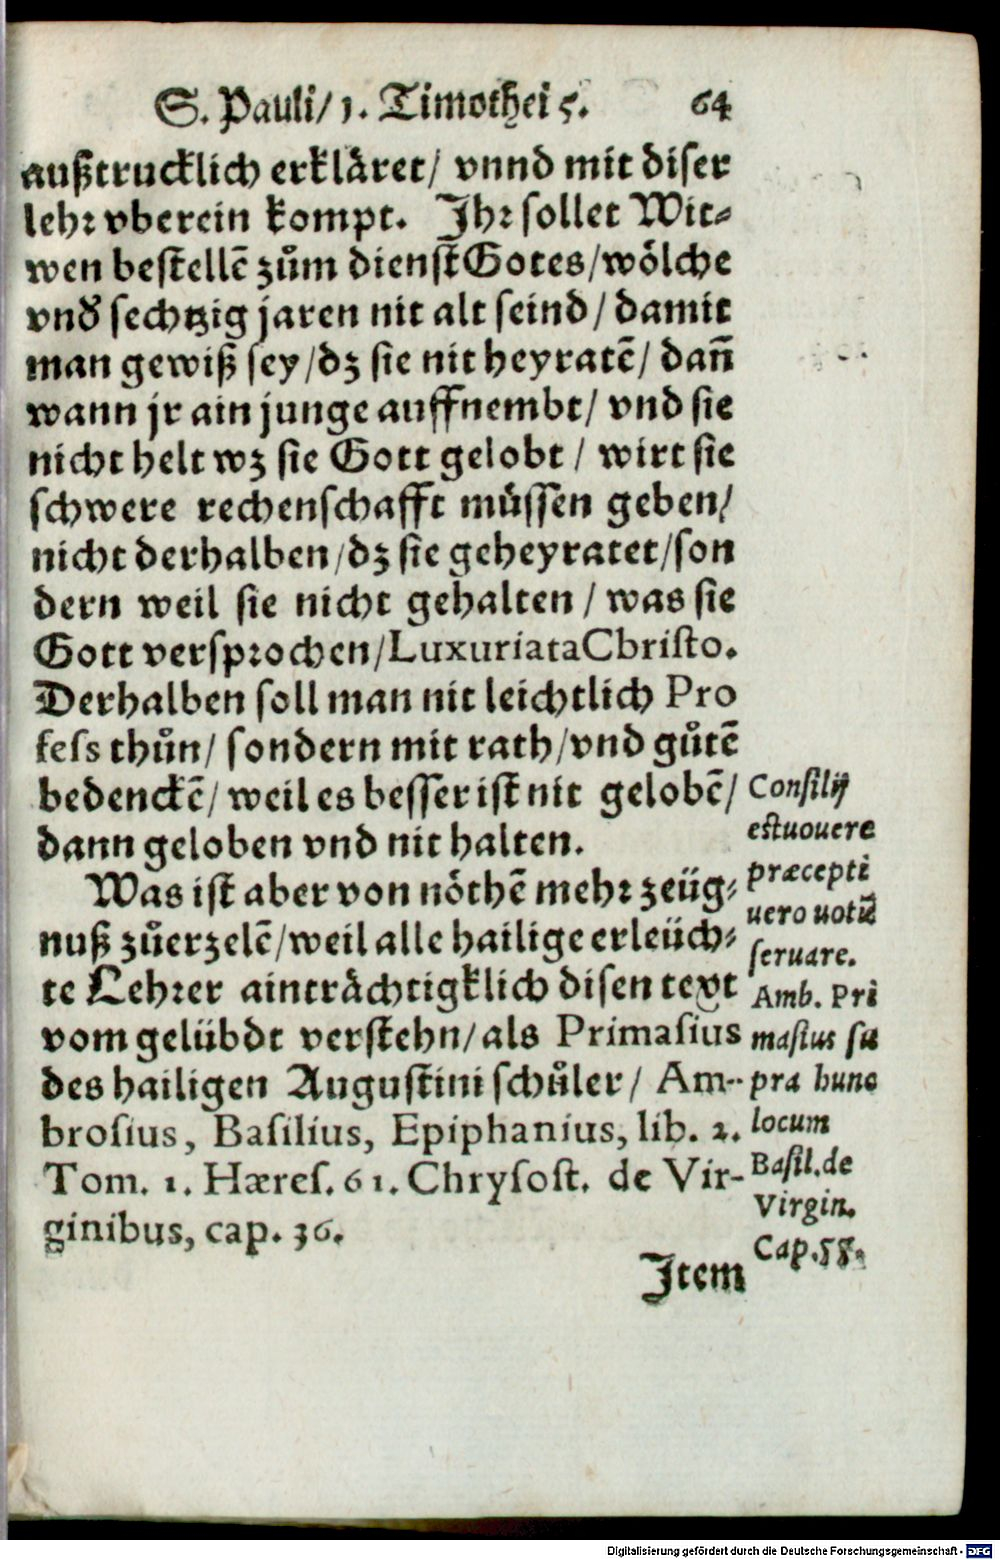 S. Pauli/ 1. Timothei 5. 64
außtrucklich erkläret/ vnnd mit diser
lehr vberein kompt. Jhr sollet Wit⸗
wen bestellē zům dienst Gotes/wölche
vnd̕ sechtzig jaren nit alt seind/ damit
man gewiß sey/dz sie nit heyratē/ dañ
wann jr ain junge auffnembt/ vnd sie
nicht helt wz sie Gott gelobt/ wirt sie
schwere rechenschafft müssen geben/
nicht derhalben/dz sie geheyratet/son
dern weil sie nicht gehalten/ was sie
Gott versprochen/Luxuriata Christo.
Derhalben soll man nit leichtlich Pro
fess thůn/ sondern mit rath/vnd gůtē
bedenckē/ weil es besser ist nit gelobē/
dann geloben vnd nit halten.
Was ist aber von nöthē mehr zeüg⸗
nuß zůerzelē/weil alle hailige erleüch⸗
te Lehrer ainträchtigklich disen text
vom gelübdt verstehn/als Primasius
des hailigen Augustini schůler/ Am-
brosius, Basilius, Epiphanius, lib. 2.
Tom. 1. Hæres. 61. Chrysost. de Vir-
ginibus, cap. 36.
Jtem
Consilij
est uouere
præcepti
uero uotū
seruare.
Amb. Pri
masius su
pra hunc
locum
Basil. de
Virgin.
Cap. 55.
Digitalisierung gefördert durch die Deutsche Forschungsgemeinschaft - DFG